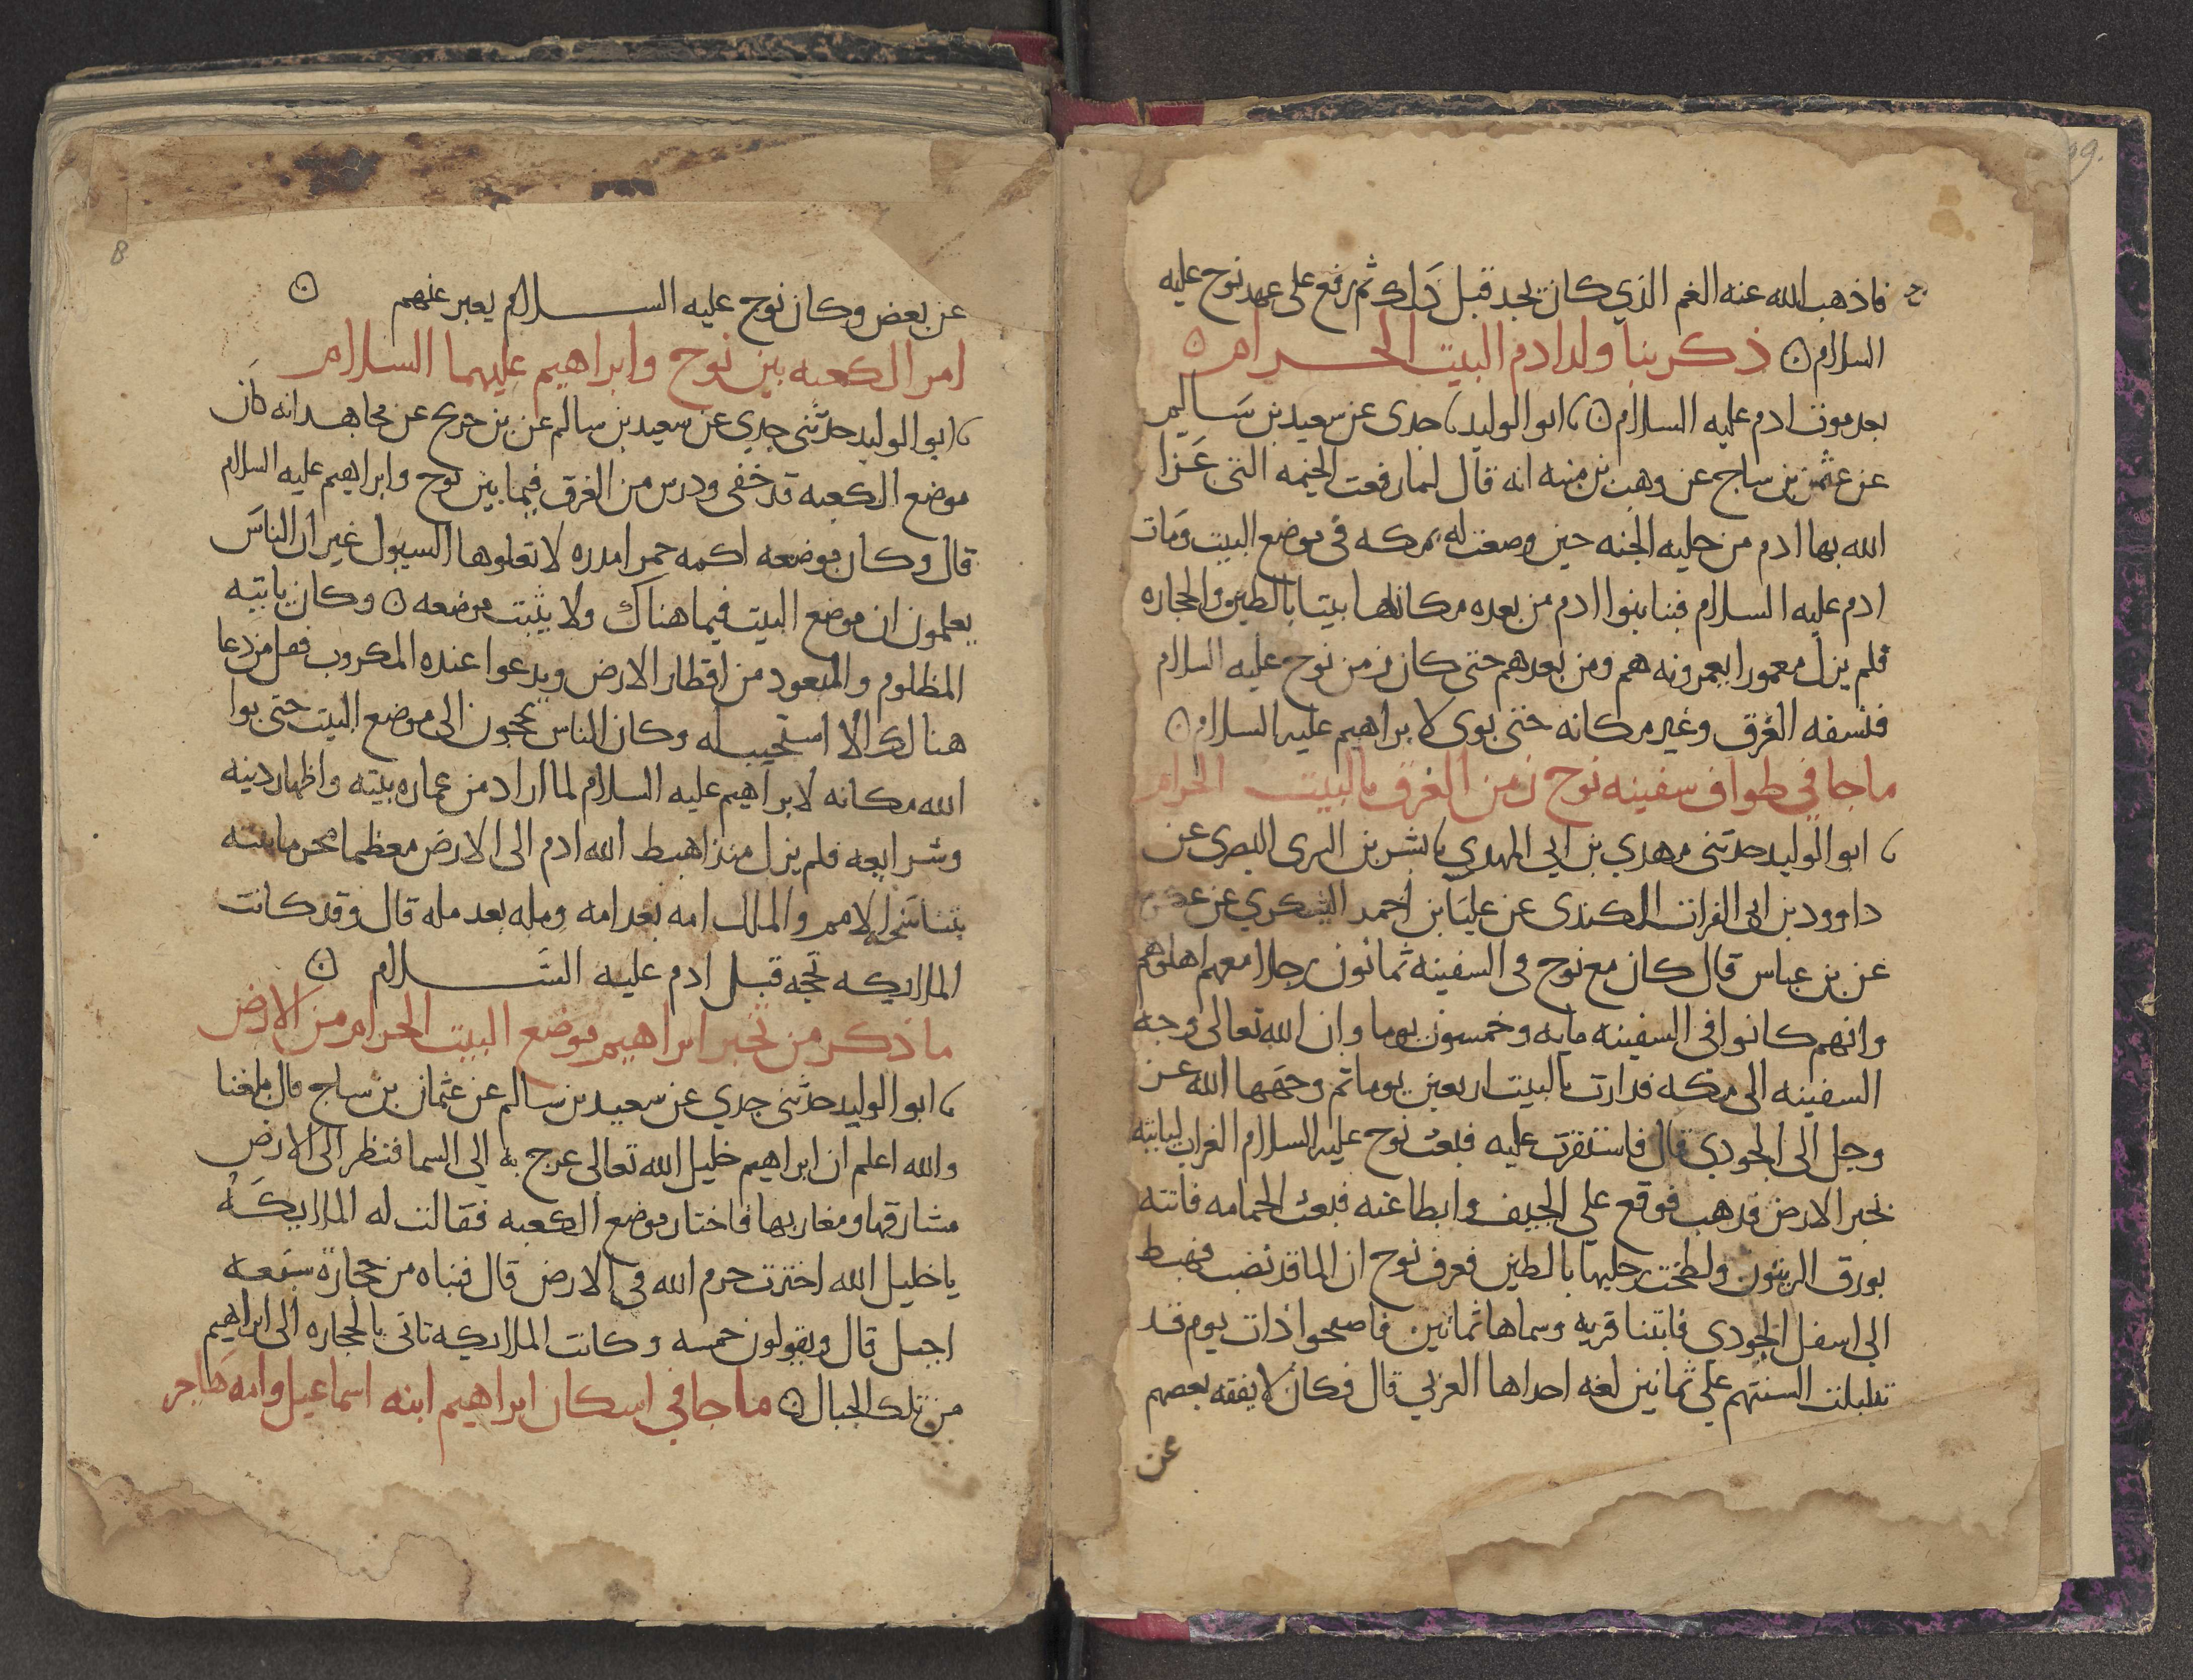 فاذهب الله عنه الغم الذي كان يجد قبل ذلك ثم رفع على عهد نوح عليه
السلام ه ذكر بنا ولد ادم البيت الحرام ه
بعد موت ادم عليه السلام ه ابو الوليد جدى عن سعيد بن سالم
عن عثمن بن ساج عن وهب بن منبه انه قال لما رفعت الخيمه التى عزا
الله بها ادم من حليه الجنه حين وضعت له بمكه في موضع البيت ومات
ادم عليه السلام فبنا بنوا ادم من بعده مكانها بيتا بالطين والحجاره
فلم يزل معمورا يعمرونه هم ومن بعدهم حتى كان زمن نوح عليه السلام
فنسفه الغرق وغير مكانه حتى بوى لابراهيم عليه السلام ه
ماجا في طواف سفينه نوح زمن الغرق بالبيت الحرام
ابو الوليد حدثنى مهدي بن ابي المهدي بشر بن السرى البصرى عن
داوود بن ابى الفرات الكندى عن عليا بن احمد اليشكري عن عكرمه
عن بن عباس قال كان مع نوح فى السفينه ثمانون رجلا معهم اهلوهم
وانهم كانوا فى السفينه مايه وخمسون يوما وان الله تعالى وجه
السفينه الى مكه فدارت بالبيت اربعين يوما ثم وجهها الله عز
وجل الى الجودي قال فاستقرت عليه فبعث نوح عليه السلام الغراب لياتيه
بخبر الارض فذهب فوقع على الجيف وابطا عنه فبعث الحمامه فاتته
بورق الزيتون ولطخت رجليها بالطين فعرف نوح ان الما قد نضب فهبط
الى اسفل الجودى فابتنا قريه وسماها ثمانين فاصبحوا ذات يوم قد
تبلبلت السنتهم على ثمانين لغه احداها العربي قال فكان لا يفقه بعضهم
عن
8
عن بعض وكان نوح عليه السلام يعبر عنهم ه
امر الكعبه بين نوح وابراهيم عليهما السلام
ابو الوليد حدثنى جدي عن سعيد بن سالم عن بن جريج عن مجاهد انه كان
موضع الكعبه قد خفى ودرس من الغرق فيما بين نوح وابراهيم عليه السلام
قال وكان موضعه اكمه حمرا مدره لا تعلوها السيول غير ان الناس
يعلمون ان موضع البيت فيما هناك ولا يثبت موضعه ه وكان ياتيه
المظلوم والمتعود من اقطار الارض ويدعوا عنده المكروب فقل من دعا
هنالك الا استجيب له وكان الناس يحجون الى موضع البيت حتى بوا
الله مكانه لابراهيم عليه السلام لما اراد من عماره بيته واظهار دينه
وشرايعه فلم يزل منذ اهبط الله ادم الى الارض معظما محرما بيته
تتناسخه الامم والملل امه بعد امه ومله بعد مله قال وقد كانت
الملايكه تحجه قبل ادم عليه السلام ه
ما ذكر من تخير ابراهيم موضع البيت الحرام من الارض
ابو الوليد حدثنى جدي عن سعيد بن سالم عن عثمان بن ساج قال بلغنا
والله اعلم ان ابراهيم خليل الله تعالى عرج به الى السما فنظر الى الارض
مشارقها ومغاربها فاختار موضع الكعبه فقالت له الملايكه
يا خليل الله اخترت حرم الله في الارض قال فبناه من حجارة سبعه
اجبل قال ويقولون خمسه وكانت الملايكه تاتى بالحجاره الى ابراهيم
من تلك الجبال ه ماجا في اسكان ابراهيم ابنه اسماعيل وامه هاجر